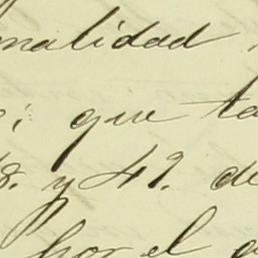 nalidad
; que ta
8. y 49. de
por el